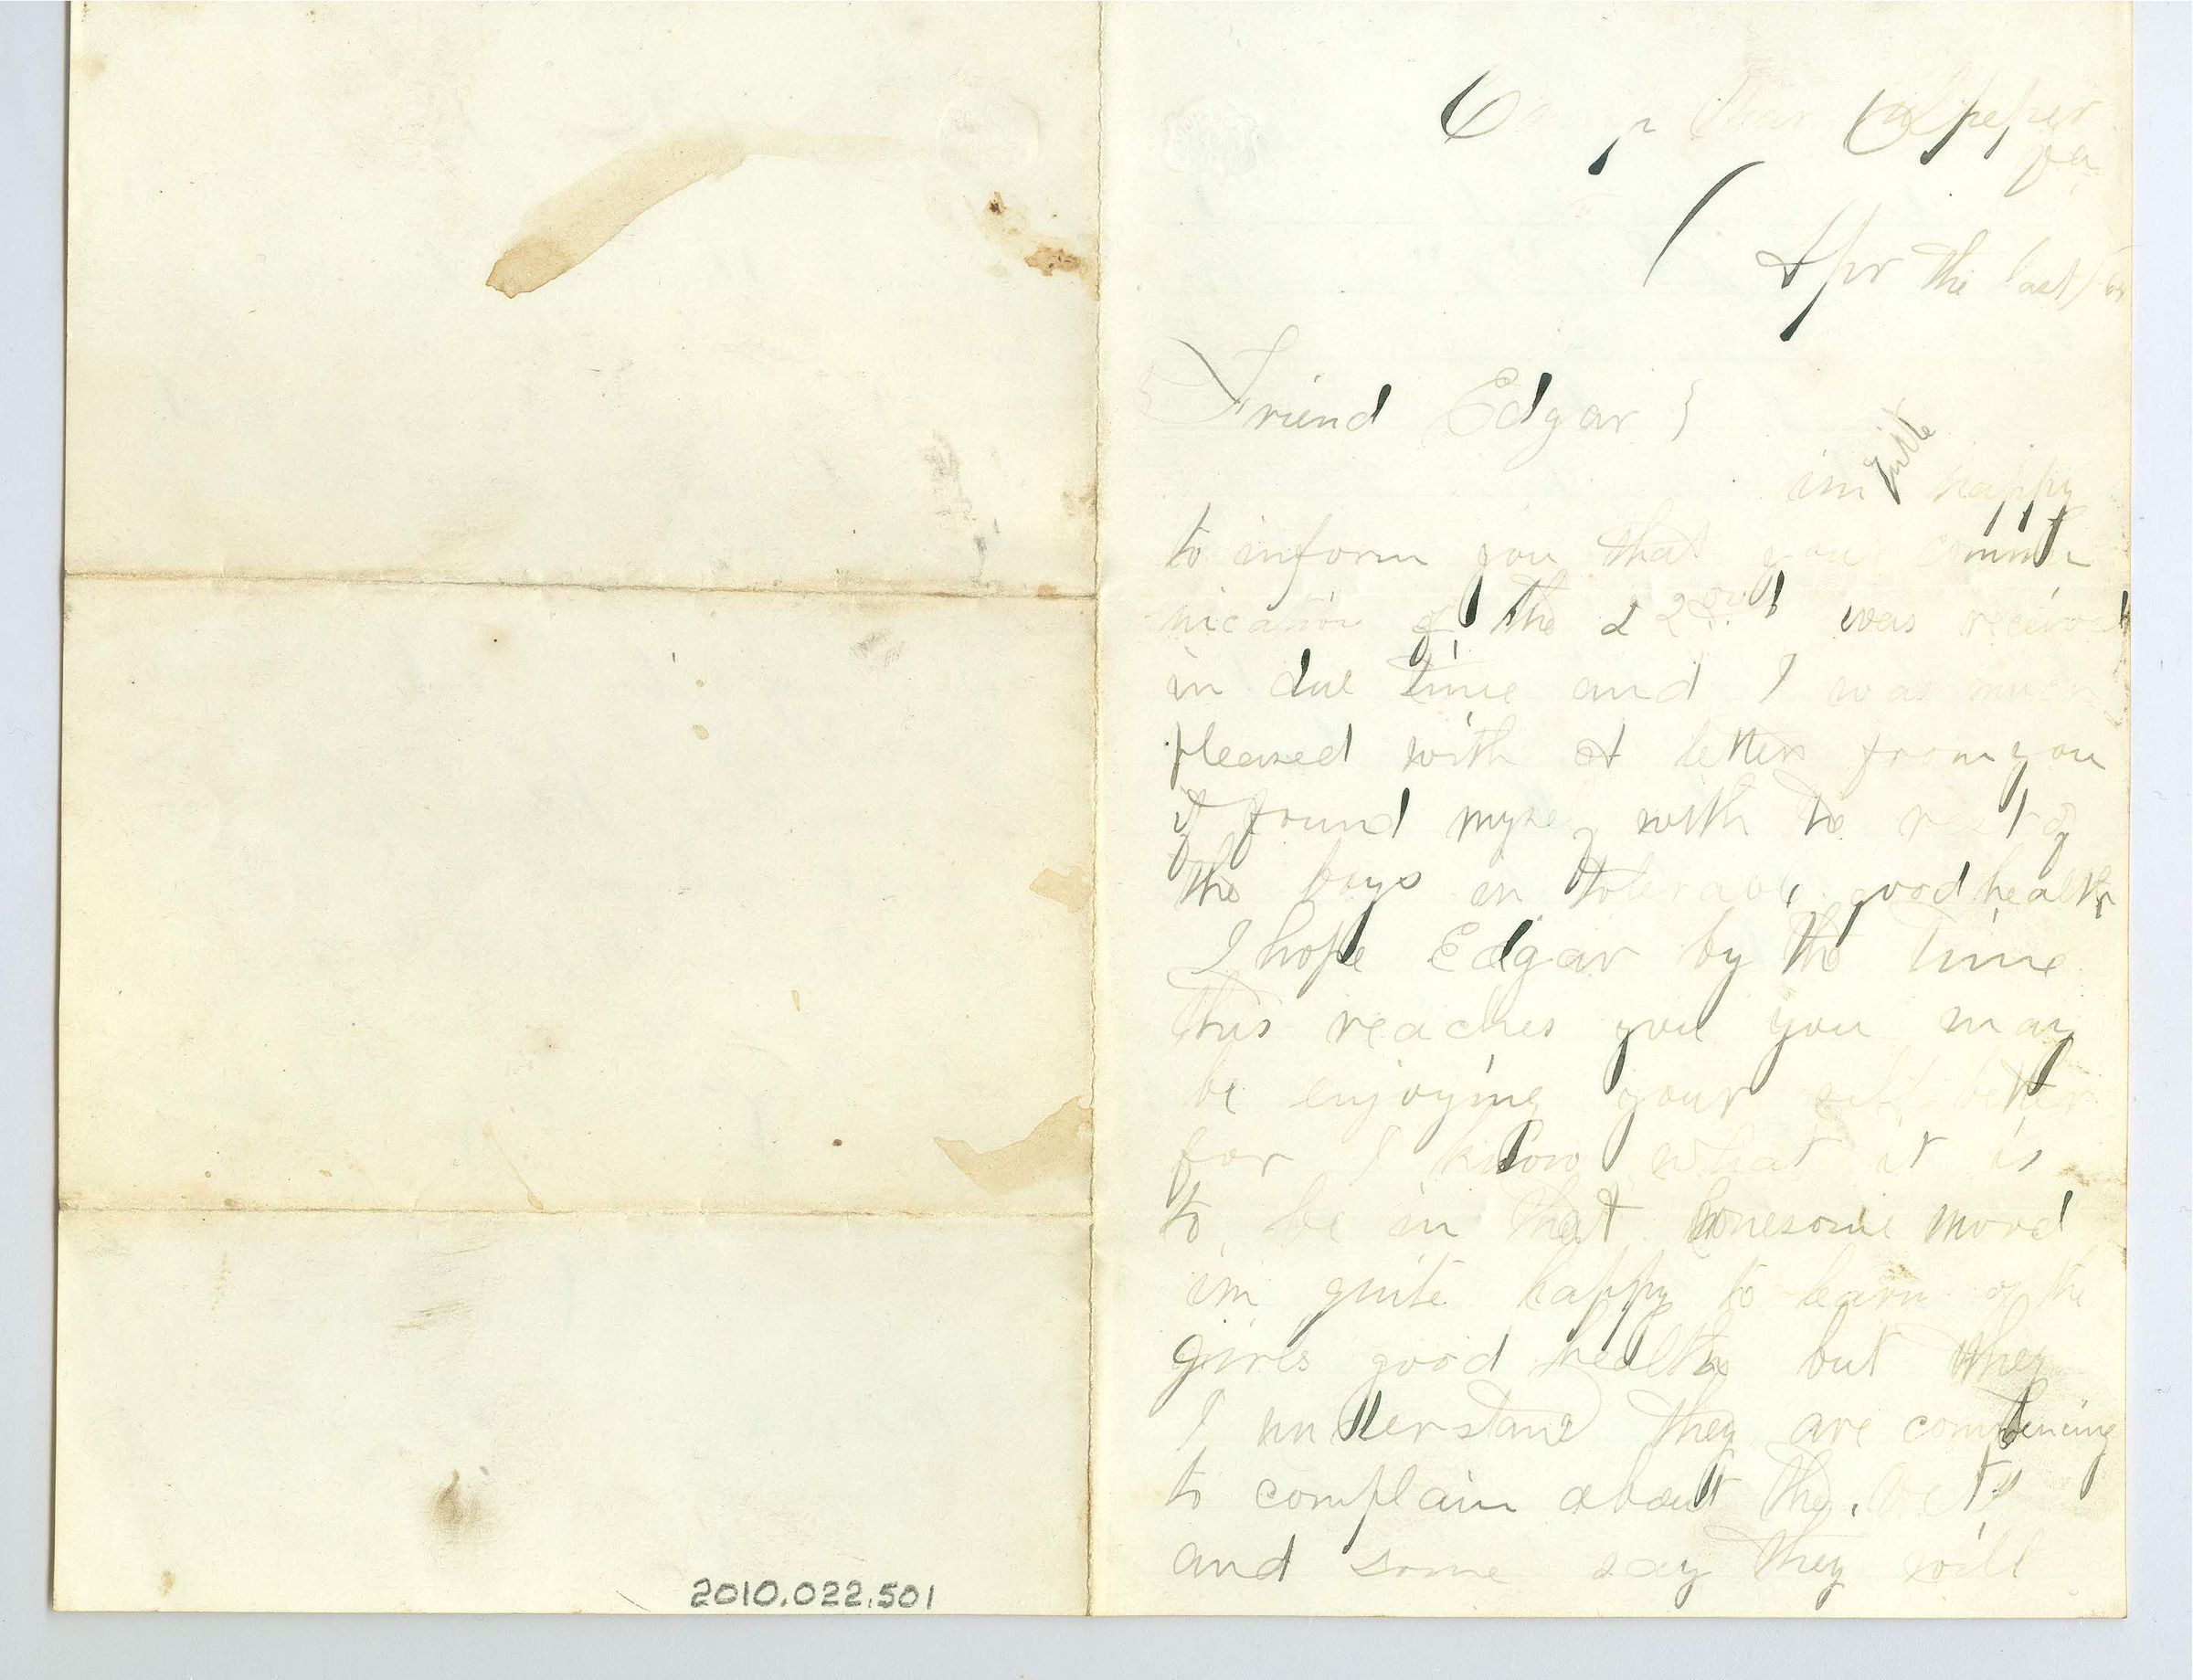 Camp near Culpeper
Va
Apr the last / 64
Friend Edgar }
im quite happy
to inform you that your commu
nication of the 22ond was received
in due time and I was much
pleased with it letter from you
if found myself with to rest of
the boys in tolerable good health
I hope Edgar by the time
this reaches you you may
be enjoying your self better
for I know what it is
to be in that lonesome mood
im quite happy to learn of the
girls good health but they
I understand they are commencing
to complain about the
and some say they will
2010.022.501